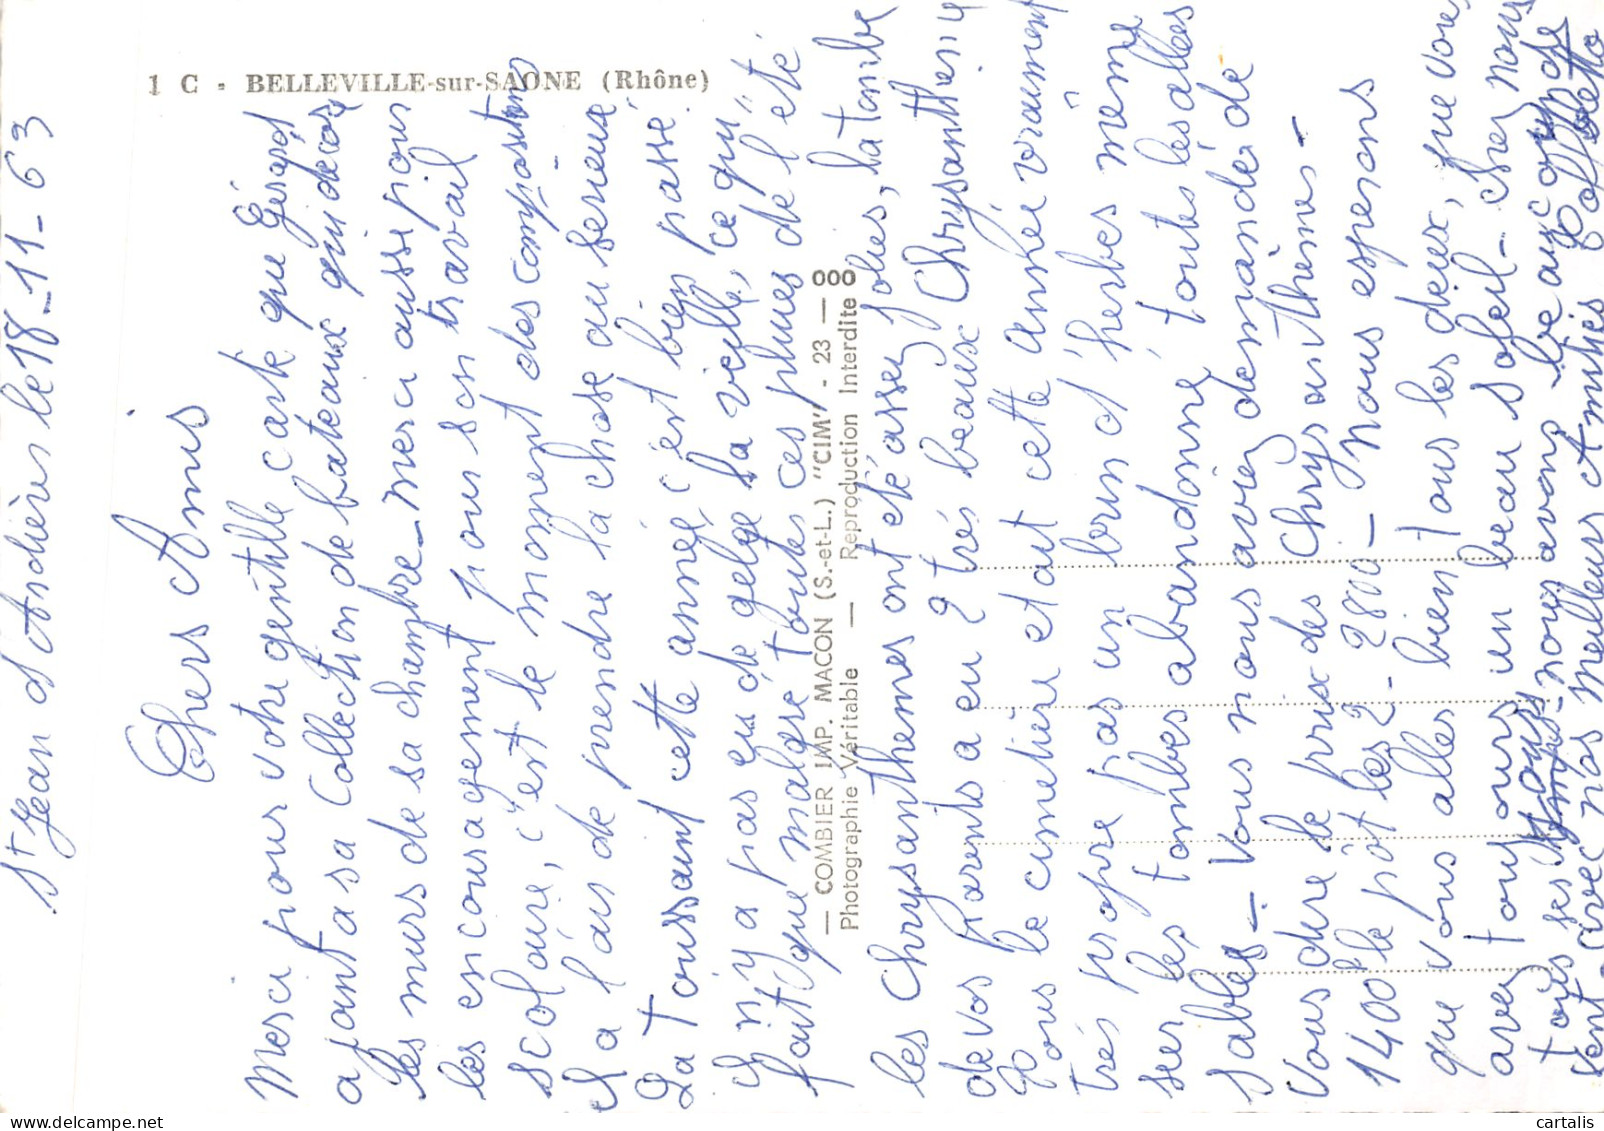 1 C - BELLEVILLE-sur-SAONE (Rhône)
St Jean d'Ardières le 18-11-63
Chers Amis
Merci pour votre gentille carte que Gérard
ajoute a sa Collection de bateaux qui décore
les murs de sa chambre - merci aussi pour
les encouragement pour son travail
scolaire, c'est le moment des compositions
il a l'air de prendre la chose au serieux
La Toussaint cette année c'est bien passé.
il n'y a pas eu de gelée la vieille, ce qui
fait que malgré toutes ces pluies de l'été
les Chrysanthemes ont été assez jolies, la tombe
de vos Parents a eu 2 trés beaux Chrysanthemes
Pour le cimetière etait cette année vraiment
trés propre pas un brin d'herbes même
sur les tombes abandonné, toutes les allées
sables - Vous nous aviez demandé de
vous dire le prix des Chrysanthèmes -
1400 le pôt les 2 - 2800 - Nous esperons
que vous allez bien tous les deux, que vous
avez toujours un beau soleil - chez nous
tous ces jours nous avons beaucoup de
vent - avec nos meilleurs Amitiés
— COMBIER IMP. MACON (S.-et-L.) "CIM" - 23 — 000
Photographie Véritable — Reproduction Interdite
cartalis
www.delcampe.net